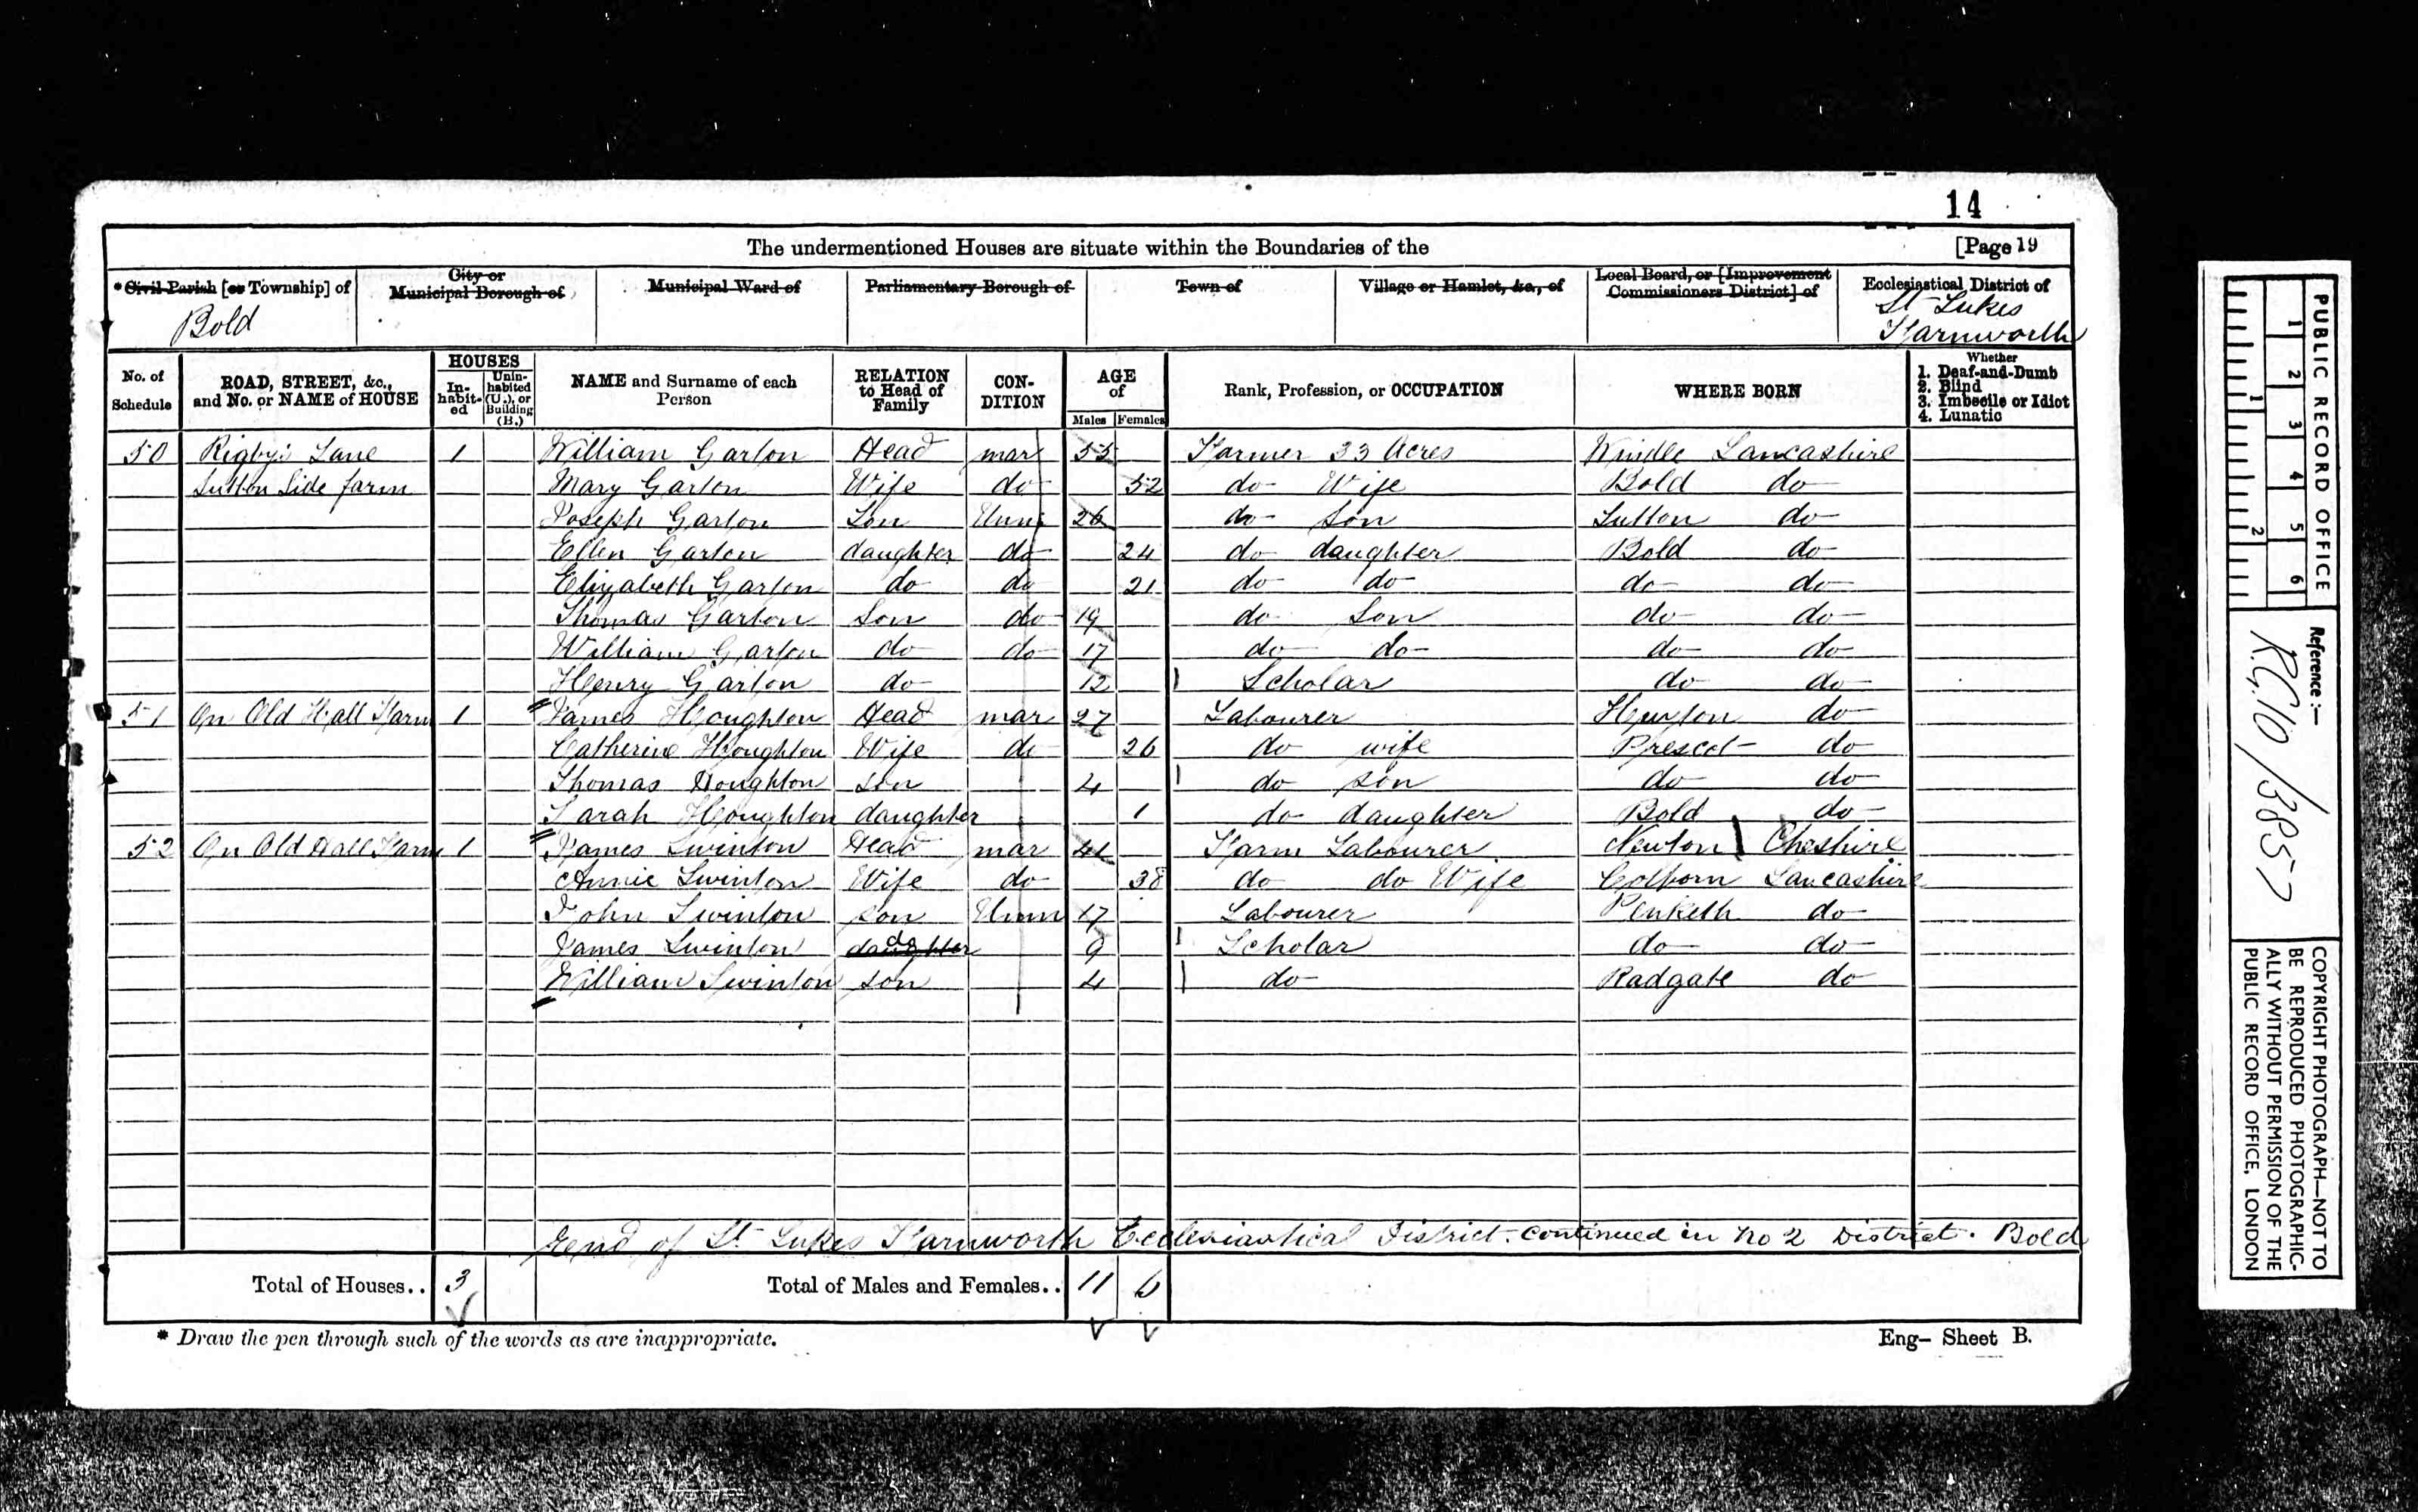 14
The undermentioned Houses are situate within the Boundaries of the [Page 19
* Civil Parish [or Township] of City or Municipal Borough of Municipal Ward of Parliamentary Borough of Town of Village or Hamlet, &c., of Local Board, or [Improvement Commissioners District] of Ecclesiastical District of
Bold St Lukes Farnworth
No. of Schedule ROAD, STREET, &c., and No. or NAME of HOUSE HOUSES Inhabited Uninhabited (U.), or Building (B.) NAME and Surname of each Person RELATION to Head of Family CONDITION AGE of Males Females Rank, Profession, or OCCUPATION WHERE BORN Whether 1. Deaf-and-Dumb 2. Blind 3. Imbecile or Idiot 4. Lunatic
50 Rigby's Lane 1 William Garton Head mar 55 Farmer 33 Acres Windle Lancashire
Sutton Side farm Mary Garton Wife do 52 do Wife Bold do
Joseph Garton Son Unm 26 do son Sutton do
Ellen Garton daughter do 24 do daughter Bold do
Elizabeth Garton do do 21 do do do do
Thomas Garton Son do 19 do Son do do
William Garton do do 17 do do do do
Henry Garton do 12 Scholar do do
51 On Old Hall Farm 1 James Houghton Head mar 27 Labourer Huyton do
Catherine Houghton Wife do 26 do wife Prescot do
Thomas Houghton son 4 do son do do
Sarah Houghton daughter 1 do daughter Bold do
52 On Old Hall Farm 1 James Swinton Head mar 41 Farm Labourer Newton Cheshire
Annie Swinton Wife do 38 do do Wife Lancashire
John Swinton son Unm 17 Labourer Penketh do
James Swinton daughter do 9 Scholar do do
William Swinton son 4 do Radgate do
End of St Lukes Farnworth Ecclesiastical District. continued in No 2 District. Bold
Total of Houses.. 3 Total of Males and Females.. 11 6
* Draw the pen through such of the words as are inappropriate. Eng- Sheet B.
PUBLIC RECORD OFFICE
1 2 3 4 5 6
1 2
Reference:-
R.G.10/3857
COPYRIGHT PHOTOGRAPH—NOT TO
BE REPRODUCED PHOTOGRAPHIC-
ALLY WITHOUT PERMISSION OF THE
PUBLIC RECORD OFFICE, LONDON